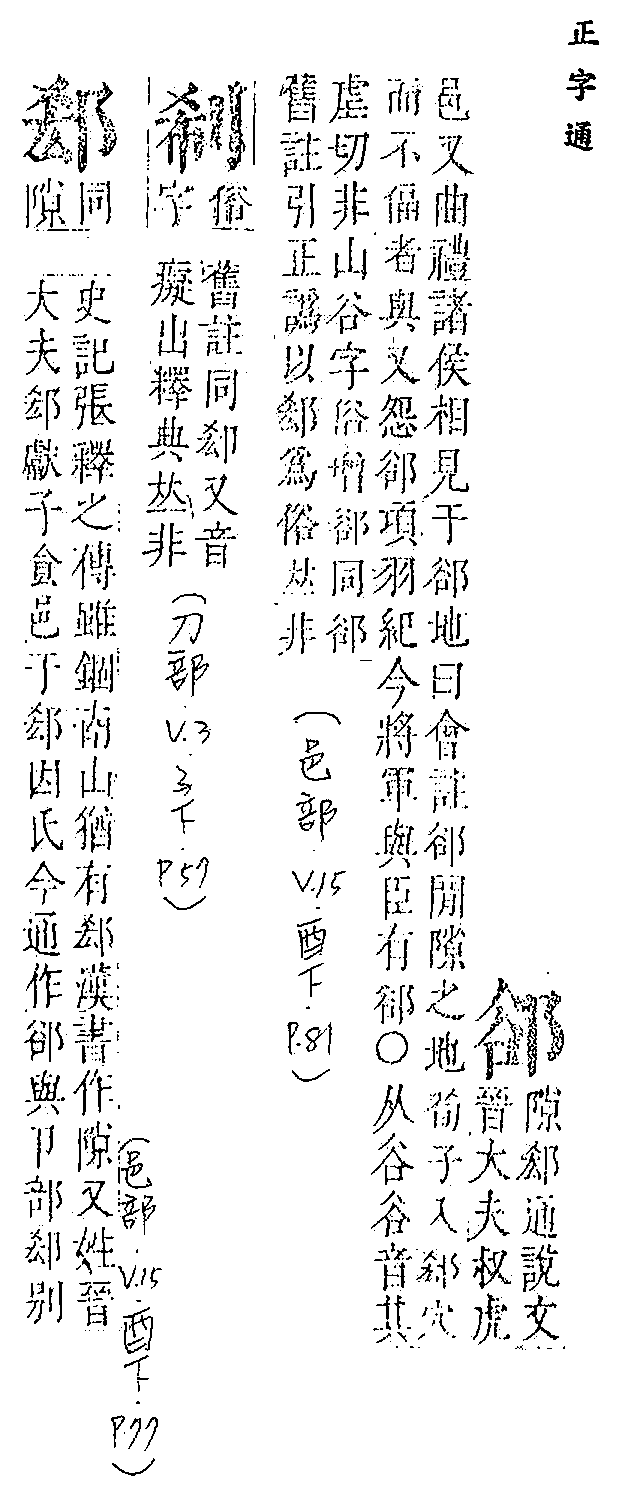 正字通
郤
隙郄通說文
晉大夫叔虎
邑又曲禮諸侯相見于郤地曰會註郤閒隙之地荀子入郄穴
而不偪者與又怨郤項羽紀今將軍與臣有郤○从谷谷音其
虐切非山谷字俗增郤同郤
舊註引正譌以郄爲俗𠀤非
(邑部.V.15.酉下.P.81)
俗字
舊註同郄又音
癡出釋典𠀤非
(刀部.V.3.子下.P.57)
郄
同隙
史記張釋之傳雖錮南山猶有郄漢書作隙又姓晉
大夫郄獻子食邑于郄因氏今通作郤與卩部郄別
(邑部.V.15.酉下.P.77)